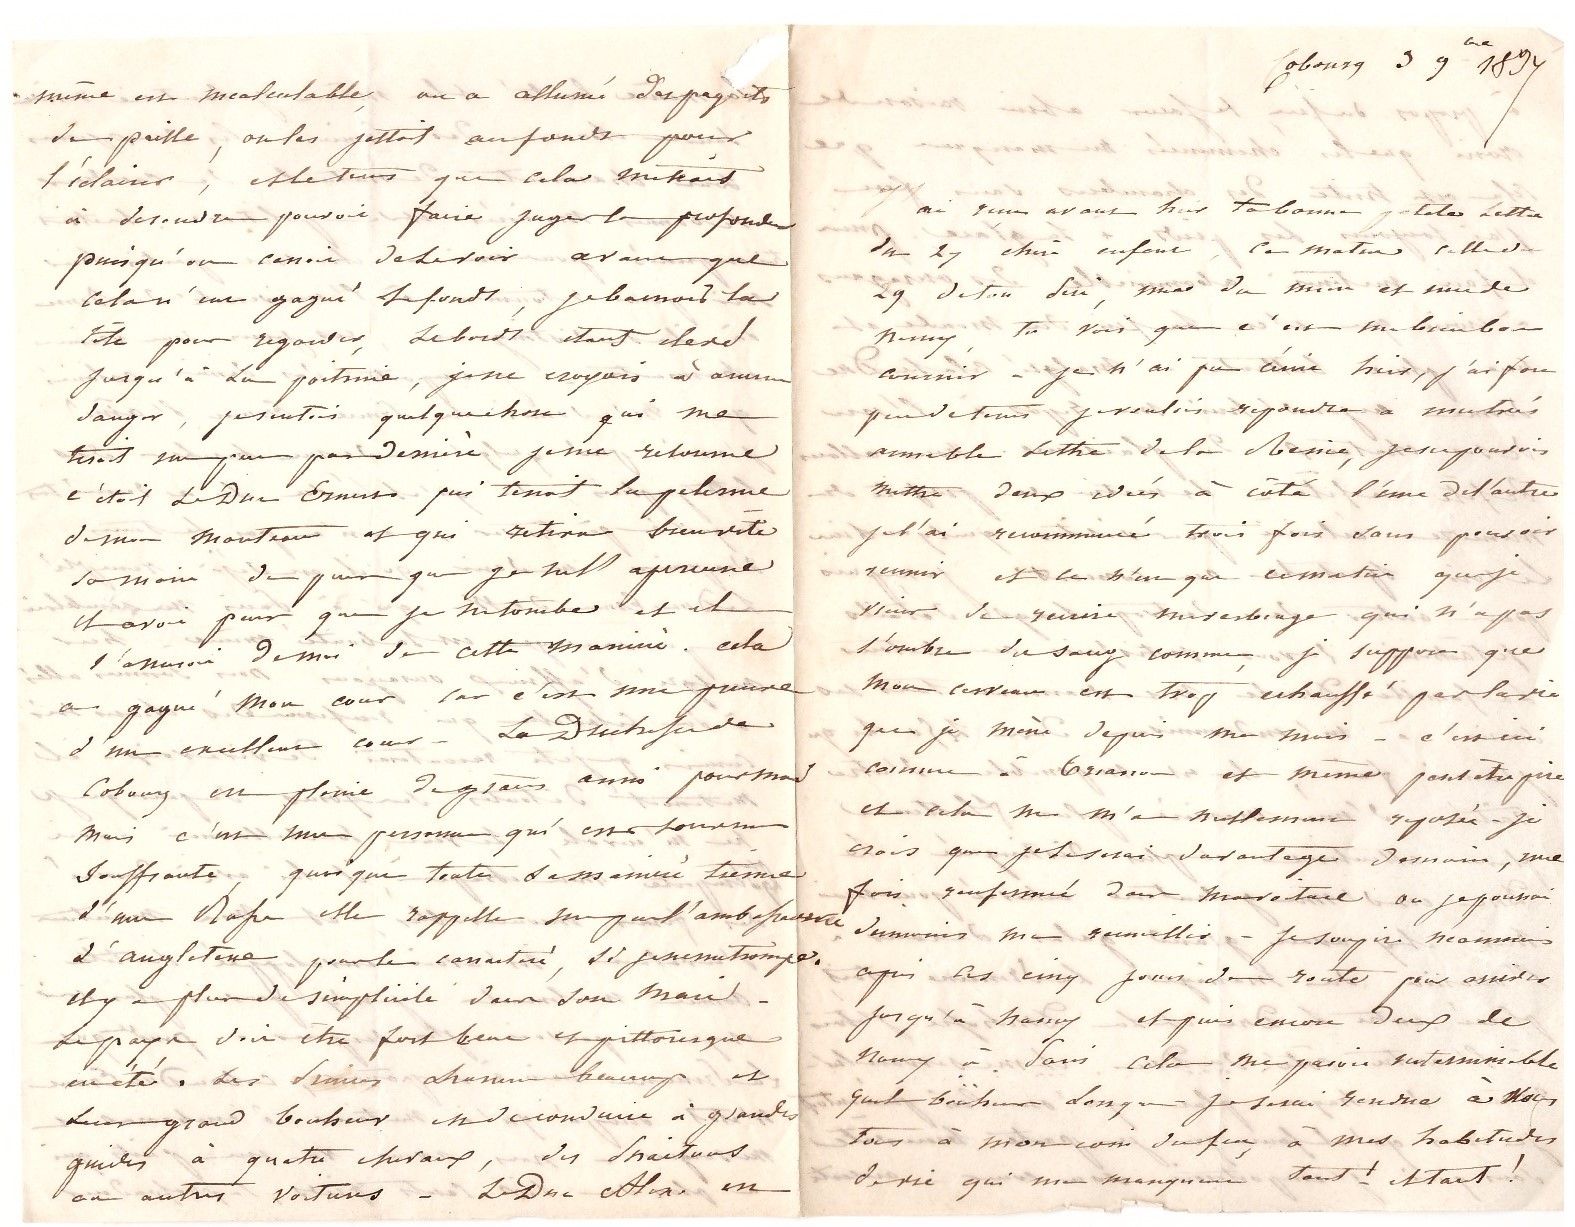 Cobourg 3 9bre 1837
J'ai reçu avant hier ta bonne petite lettre
du 27 chère enfant, ce matin celle du
29 de ton
Nancy, tu vois que c'est un bien bon
courrier - je n'ai pu écrire hier, j'ai fort
peu de tems je voulois repondre a une très
aimable lettre de la Reine, je ne pouvois
mettre deux idées à côté l'une de l'autre
je l'ai recommencé trois fois sans pouvoir
reunir et ce n'est que ce matin que je
viens de qui n'a pas
l'ombre du sang commun, je suppose que
mon cerveau est trop echauffé par la vie
que je mène depuis un mois - c'est ici
comme à Trianon et même peut etre pire
et cela ne m'a nullement reposée - je
crois que je le serai davantage demain, une
fois renfermée dans ma voiture ou je pourrai
du moins me recueillir - je soupire neanmoins
après les cinq jours de route pour arriver
jusqu'à Nancy et puis encore deux de
Nancy à Paris cela me paroit interminable
quel bonheur lorsque je serai rendue à vous
tous à mon coin du feu, à mes habitudes
de vie qui me manquent tant! et tant!
même est incalculable, on a allumé des paquets
de paille, on les jettoit au fond pour
l'éclairer, et le tems que cela mettoit
à descendre pouvoit faire juger la profondeur
puisqu'on cessoit de le voir avant que
cela n'eut gagné le fond, je baissois la
tête pour regarder, le bord étant élevé
jusqu'à la poitrine, je ne croyois à aucun
danger, je sentois quelque chose qui me
tiroit un peu par derrière je me retourne
c'étoit le Duc Ernest qui tenoit la pelerine
de mon manteau et qui retira bien vite
sa main de peur que je m'en apperçue
il avoit peur que je ne tombe et il
s'assuroit de moi de cette manière. cela
a gagné mon cœur car c'est une preuve
d'un excellent cœur - La Duchesse de
Cobourg est pleine de graces aussi pour moi
mais c'est une personne qui est
souffrante, quoique toute sa manière tienne
d'une Russe elle rappelle un peu l'ambassadrice
d'Angleterre pour le caractère, si je ne me trompe.
il y a plus de simplicité dans son mari -
Le pays doit etre fort beau et pittoresque
en été. Les Princes chassent beaucoup et
leur grand bonheur est de conduire à grandes
guides à quatre chevaux, des
ou autres voitures - Le Duc Alex. en